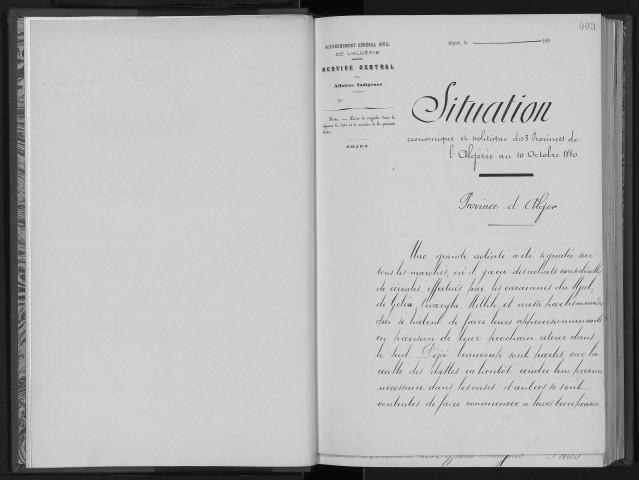 003
GOUVERNEMENT GÉNÉRAL CIVIL
DE L'ALGÉRIE
SERVICE CENTRAL
des
Affaires Indigènes
N°
Alger, le 188
OBJET:
Situation
économique et politique des 3 Provinces de
l'Algérie au 10 Octobre 1880
Province d'Alger
Une grande activité a été signalée sur
tous les marchés, où il y a eu des achats considérables
de céréales effectués par les caravanes du Mzab,
de Goléa, Ouargla, Metlili et aussi par les nomades
qui se hâtent de faire leurs approvisionnements
en prévision de leur prochain retour dans
le Sud. Déjà beaucoup sont partis car la
récolte des dattes va bientôt rendre leur présence
nécessaire dans les oasis; d'autres se sont
contentés de faire commencer à leurs troupeaux